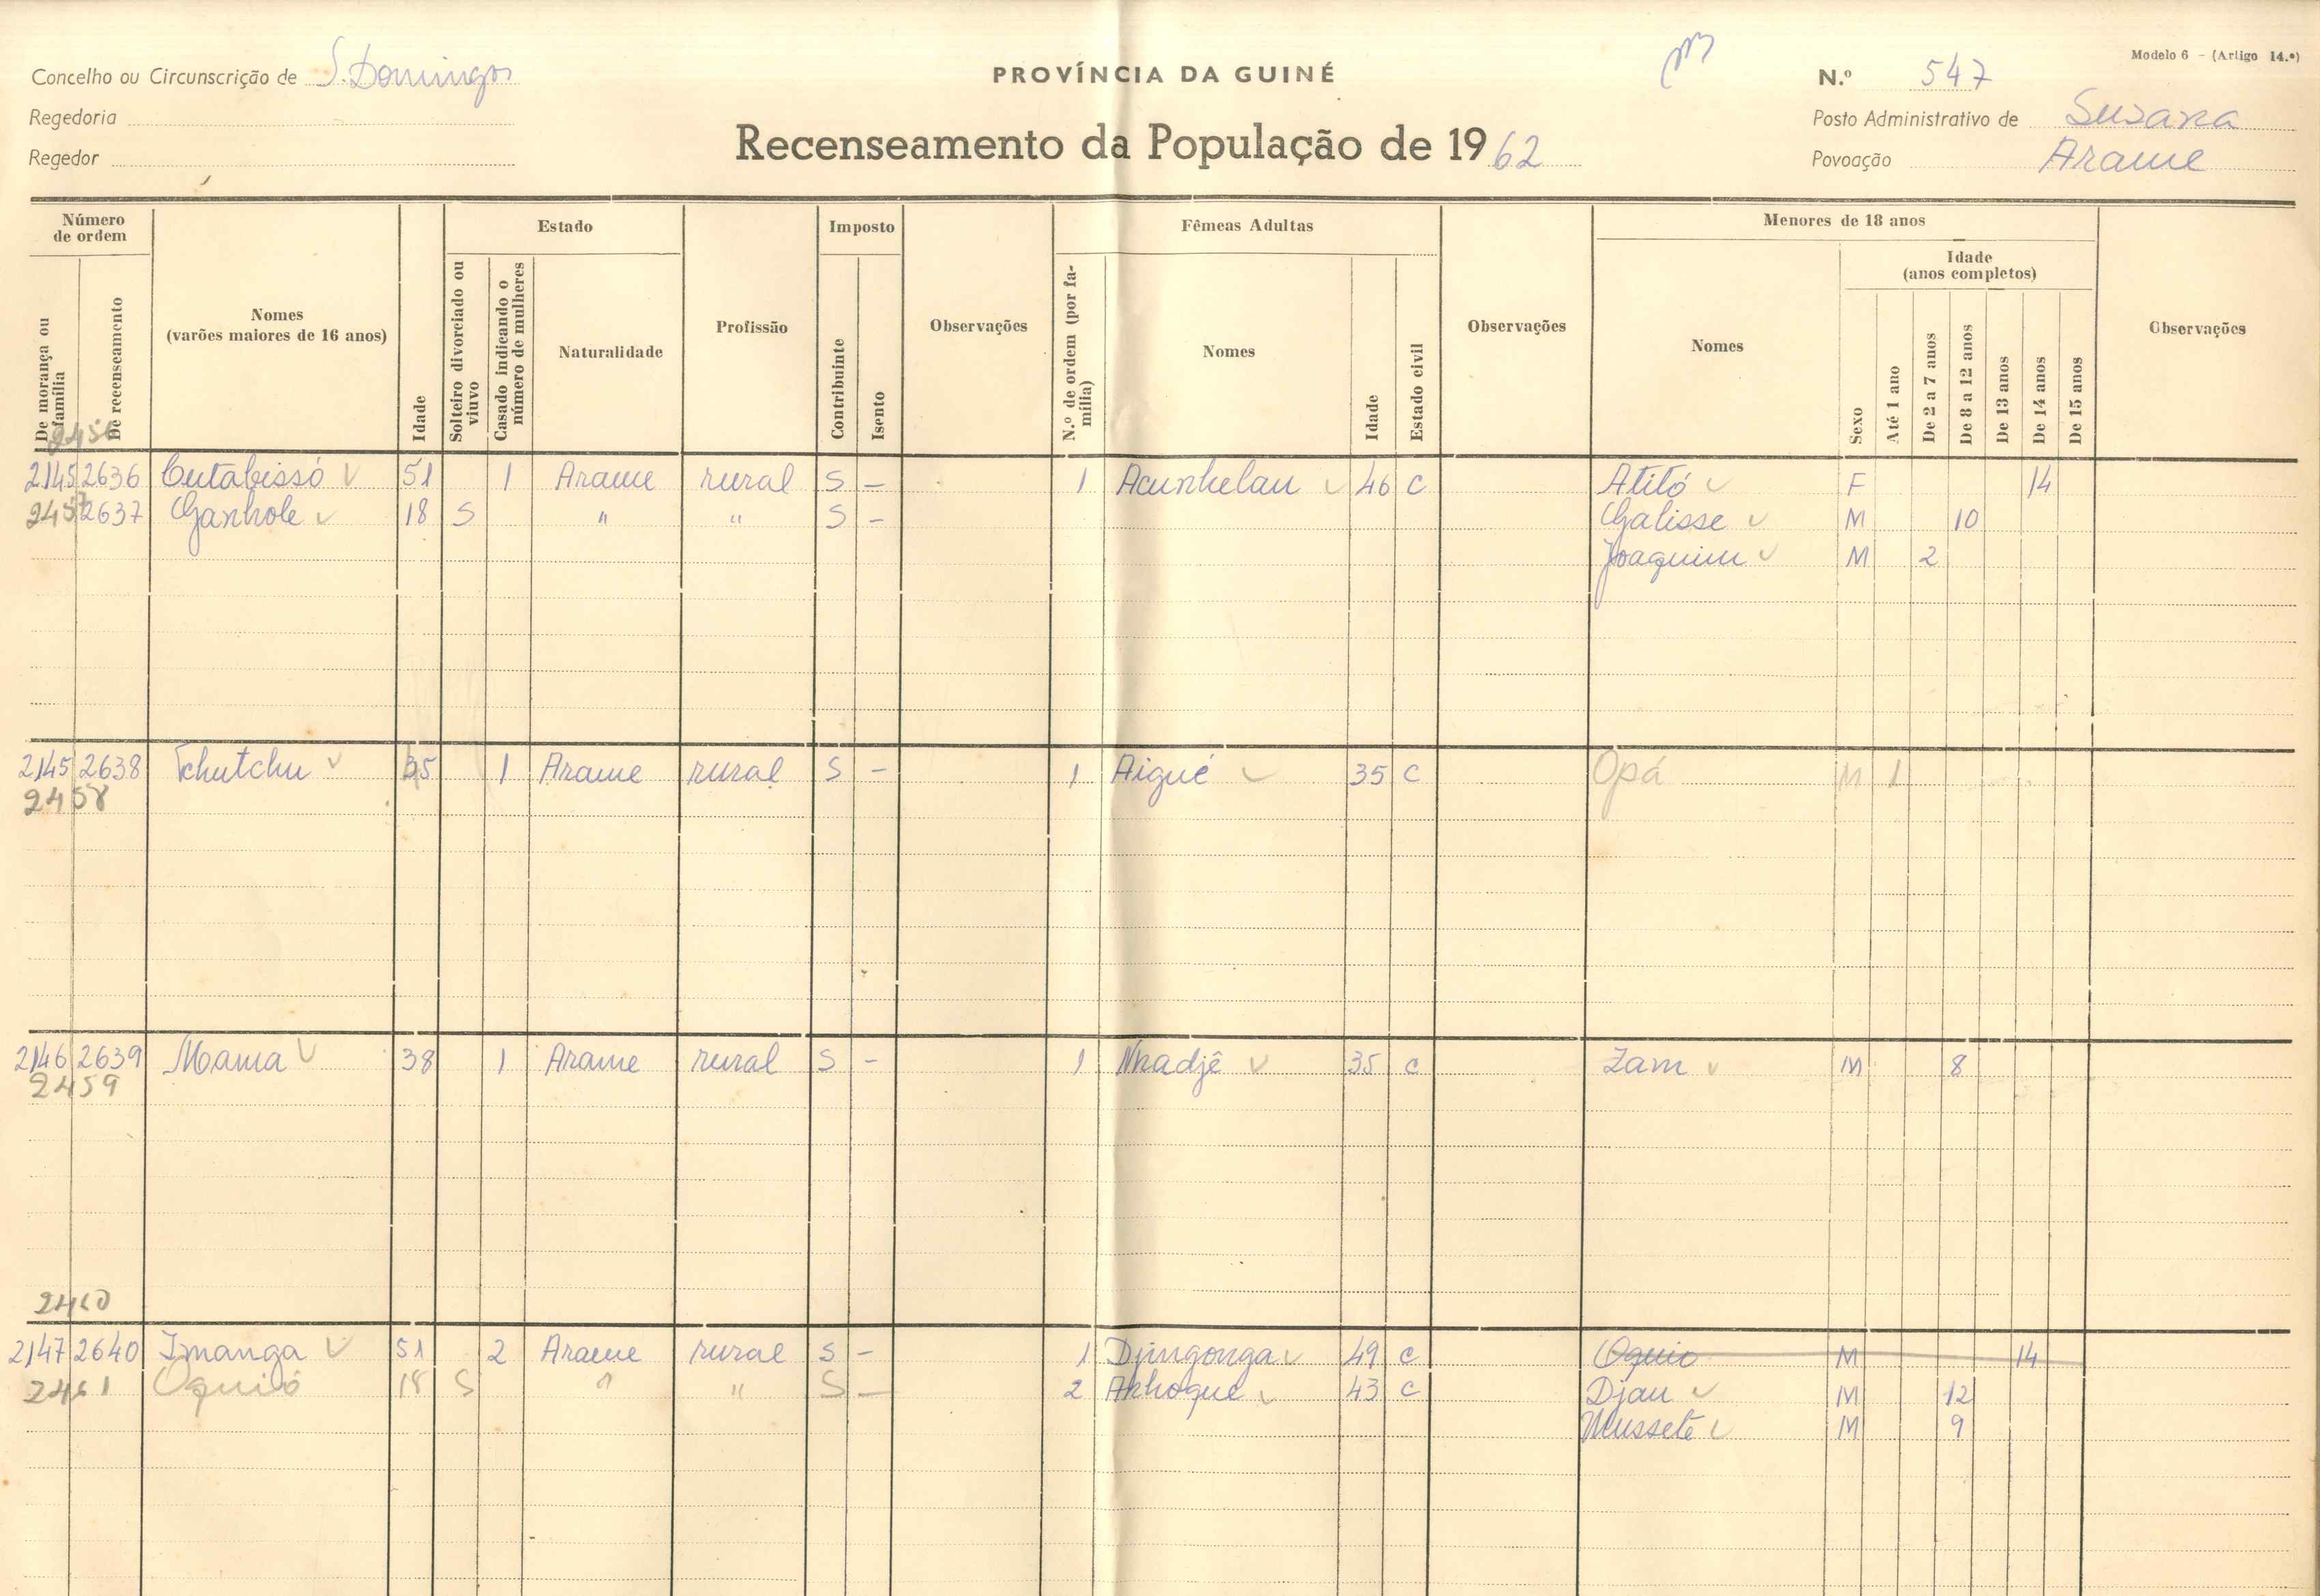 Modelo 6 - (Artigo 14.º)
Concelho ou Circunscrição de S. Domingos
PROVÍNCIA DA GUINÉ
N.º 547
Regedoria
Recenseamento da População de 1962
Posto Administrativo de Suzana
Regedor
Povoação Arame
Número de ordem
De morança ou família
De recenseamento
Nomes (varões maiores de 16 anos)
Idade
Estado
Solteiro divorciado ou viuvo
Casado indicando o número de mulheres
Naturalidade
Profissão
Imposto
Contribuinte
Isento
Observações
Fêmeas Adultas
N.º de ordem (por família)
Nomes
Idade
Estado civil
Observações
Menores de 18 anos
Nomes
Sexo
Idade (anos completos)
Até 1 ano
De 2 a 7 anos
De 8 a 12 anos
De 13 anos
De 14 anos
De 15 anos
Observações
2456
2145 2636 Cutabissó 51 1 Arame rural S - 1 Acunhelau 46 C Atitó F 14
2457 2637 Ganhole 18 S " " S - Galisse M 10
Joaquim M 2
2145 2638 Tchutchu 35 1 Arame rural S - 1 Aigué 35 C Opá M 1
2458
2146 2639 Mama 38 1 Arame rural S - 1 Nhadjê 35 C Zam M 8
2459
2460
2147 2640 Imanga 51 2 Arame rural S - 1 Djingonga 49 C Oquio M 14
2461 Oquió 18 S " " S - 2 Anhoque 43 C Djau M 12
Mussete M 9